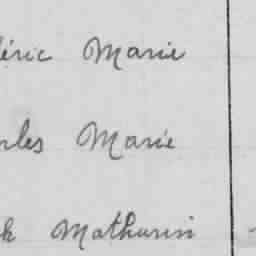 éric Marie
rles Marie
k Mathurin